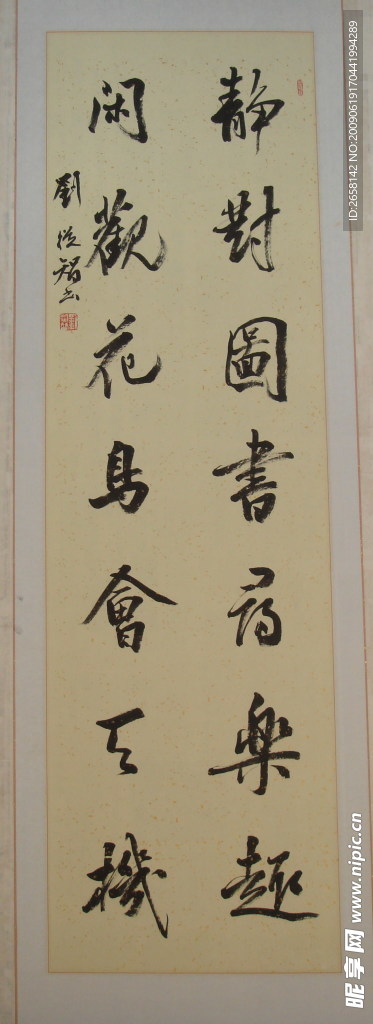 静對圖書尋樂趣
閑觀花鳥會天機
劉從智書
ID:2658142 NO:20090619170441994289
昵享网 www.nipic.cn